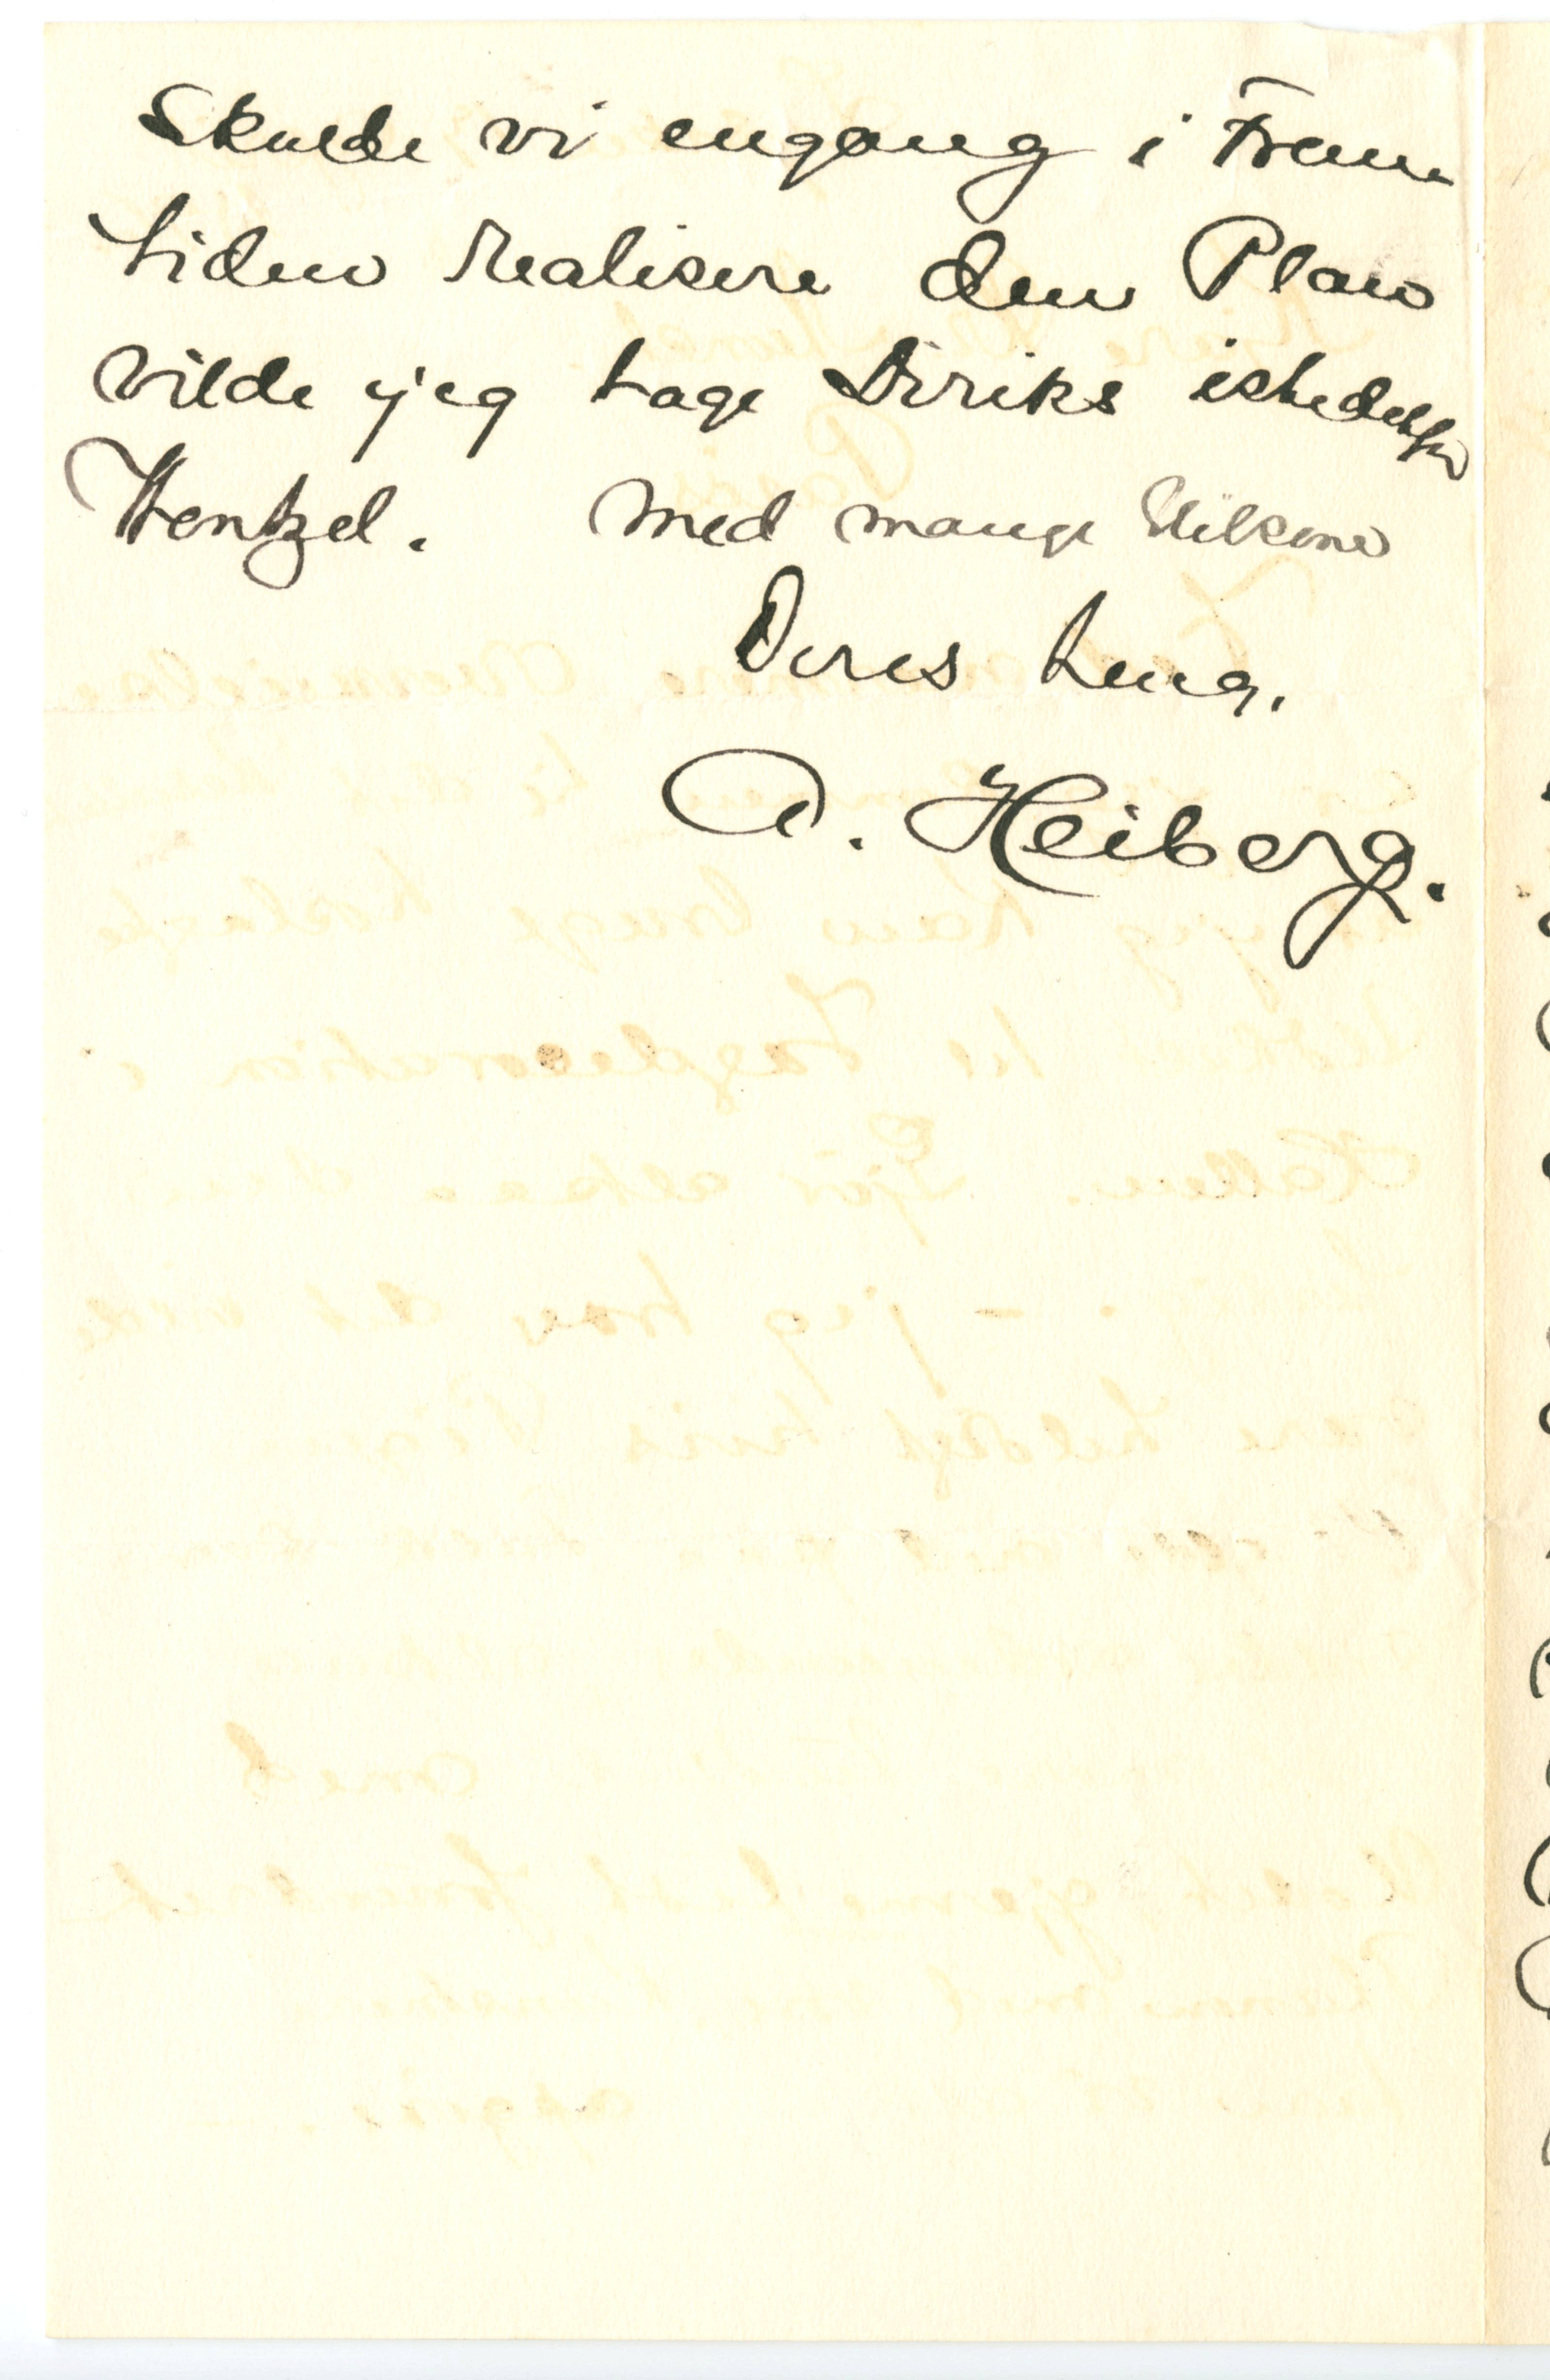 Skulde vi engang i Frem
tiden realisere den Plan
vilde jeg tage Diriks istedetfor
Wentzel. Med mange Hilsener
Deres heng.
A. Heiberg.